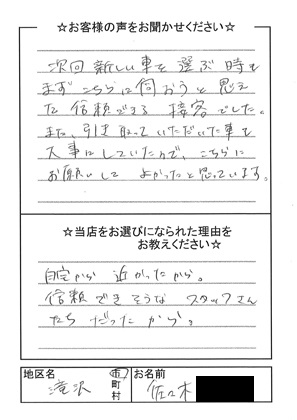 ☆お客様の声をお聞かせください☆
次回新しい車を選ぶ時も
まずこちらに伺おうと思え
た信頼できる接客でした。
また、引き取っていただいた車を
大事にしていたので、こちらに
お願いして よかったと思っています。
☆当店をお選びになられた理由を
お教えください☆
自宅から 近かったから。
信頼できそうな スタッフさん
たち だったから。
地区名 滝沢 市 町 村 お名前 佐々木